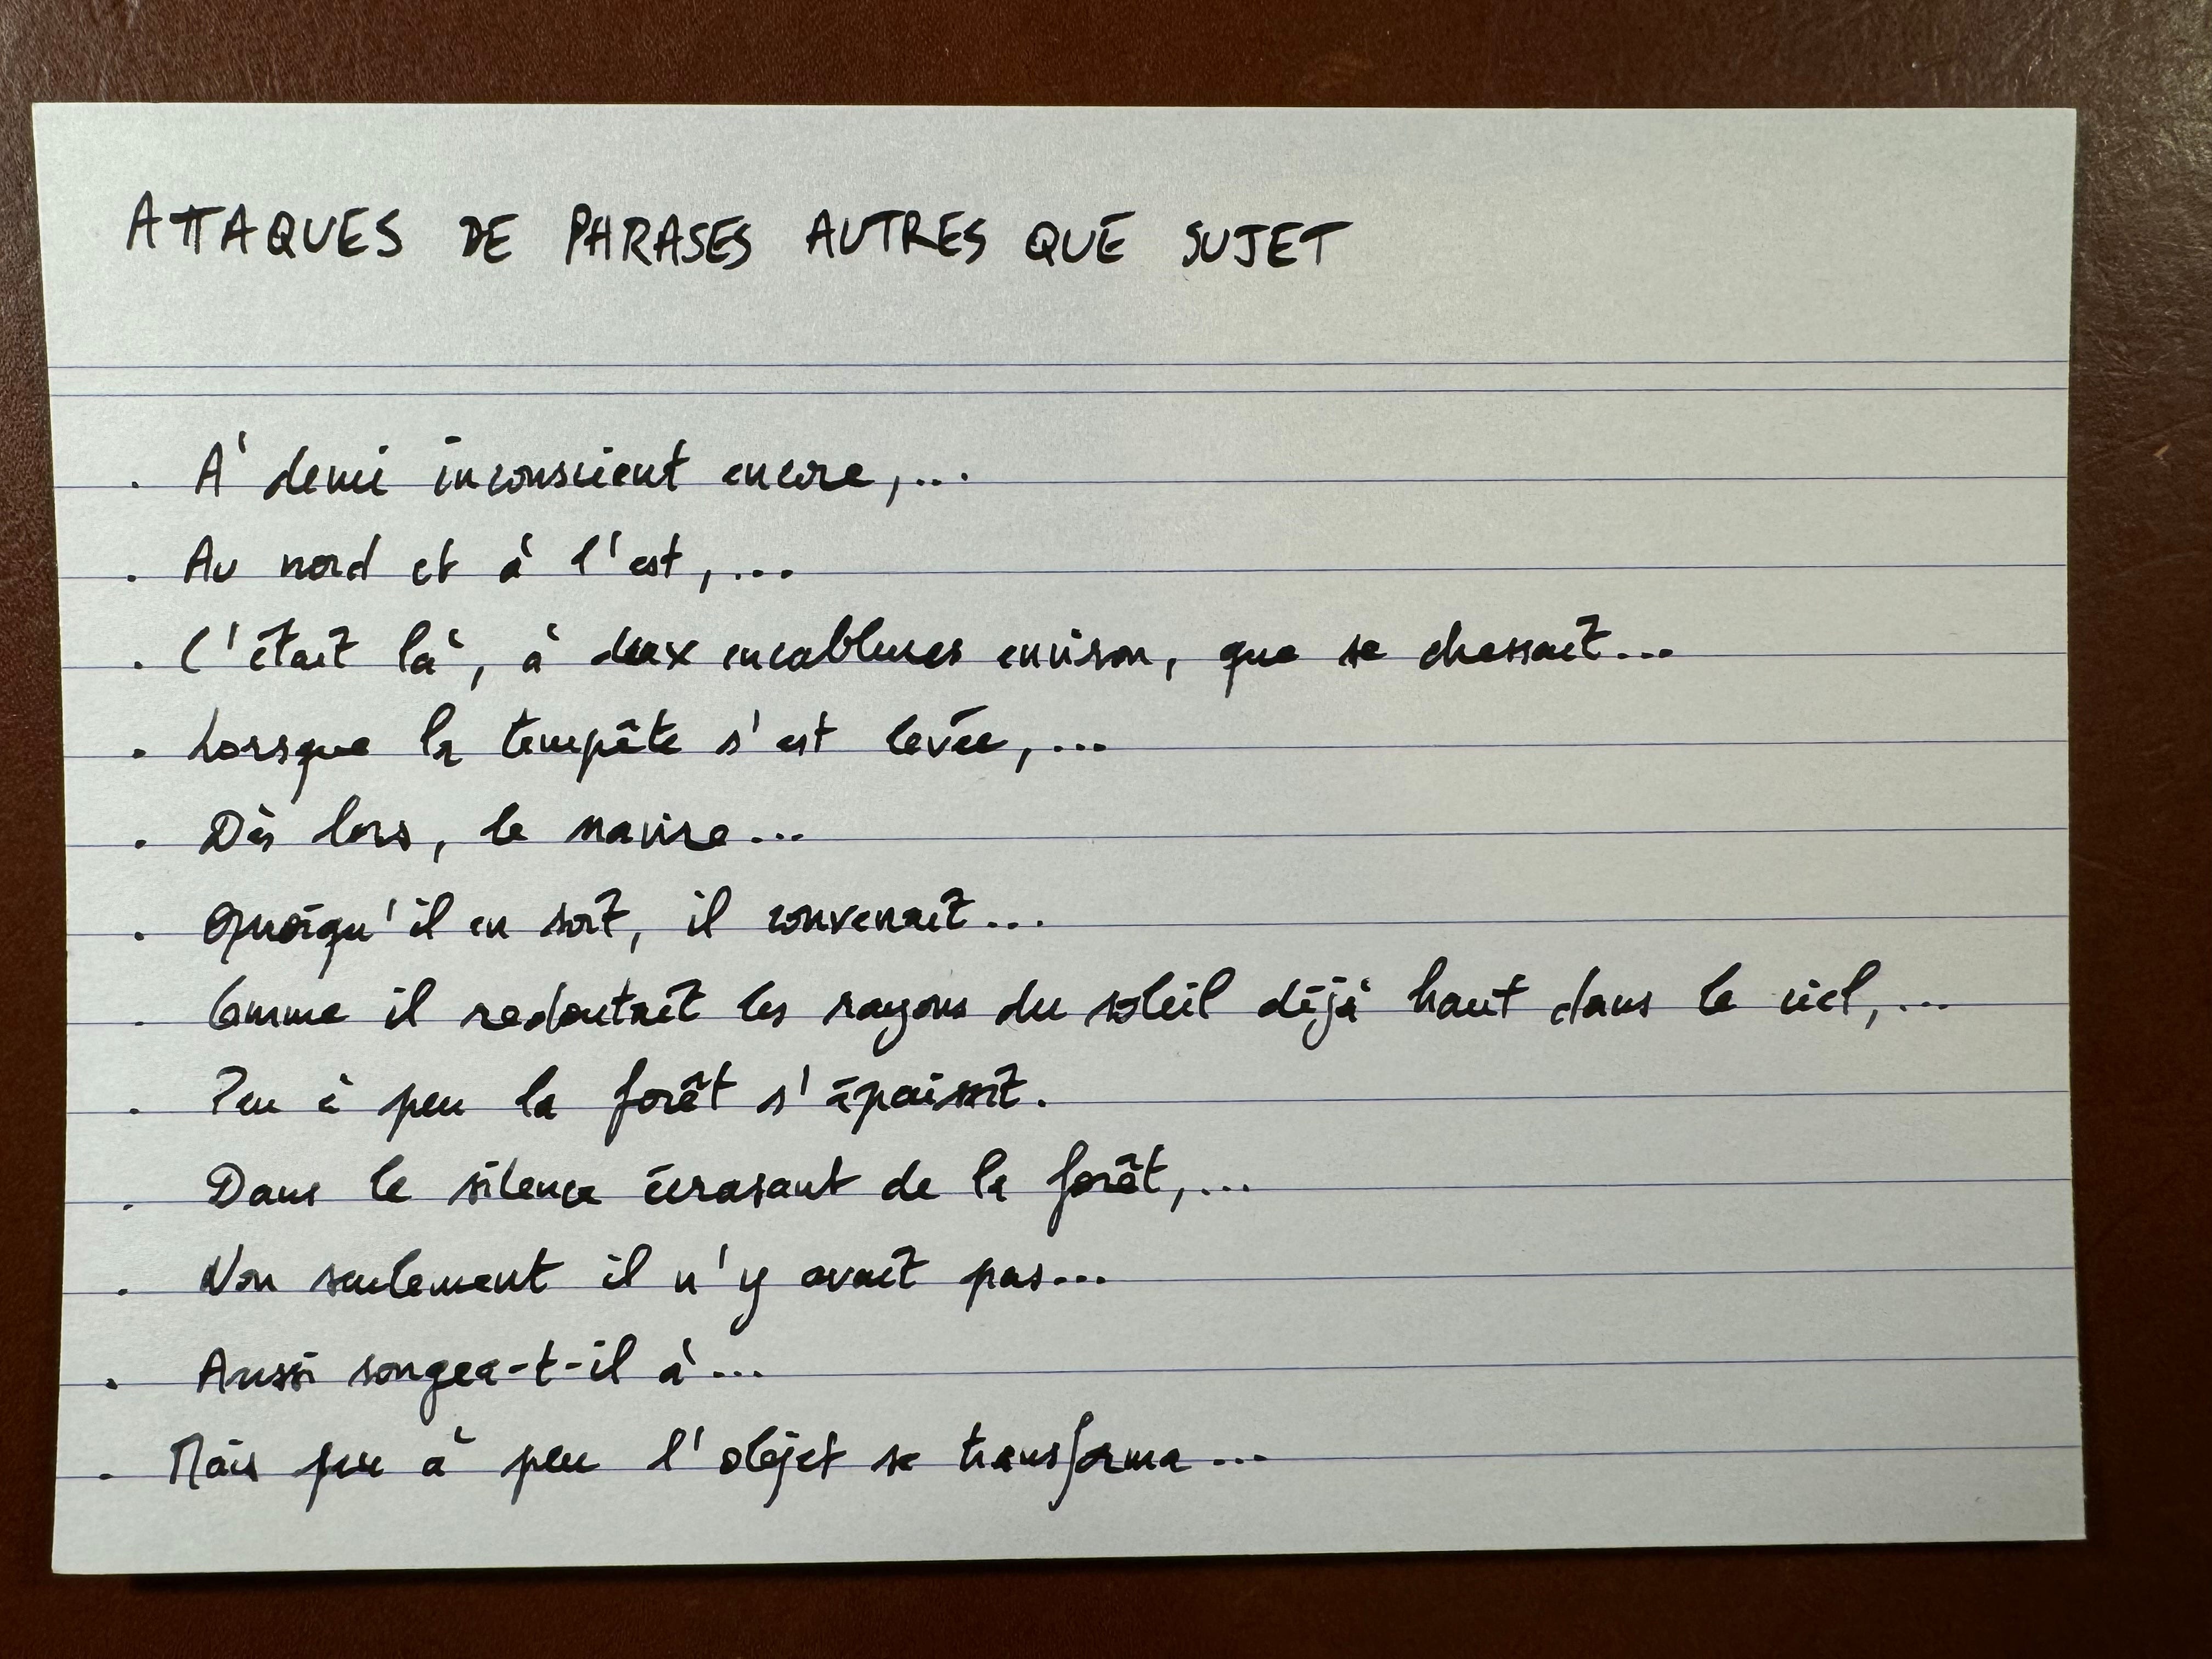 ATTAQUES DE PHRASES AUTRES QUE SUJET
. À demi inconscient encore,...
. Au nord et à l'est,...
. C'était là, à deux encablures environ, que se dressait...
. Lorsque la tempête s'est levée,...
. Dès lors, le navire...
. Quoiqu'il en soit, il convenait...
. Comme il redoutait les rayons du soleil déjà haut dans le ciel,...
. Peu à peu la forêt s'épaissit.
. Dans le silence écrasant de la forêt,...
. Non seulement il n'y avait pas...
. Aussi songea-t-il à...
. Mais peu à peu l'objet se transforma...